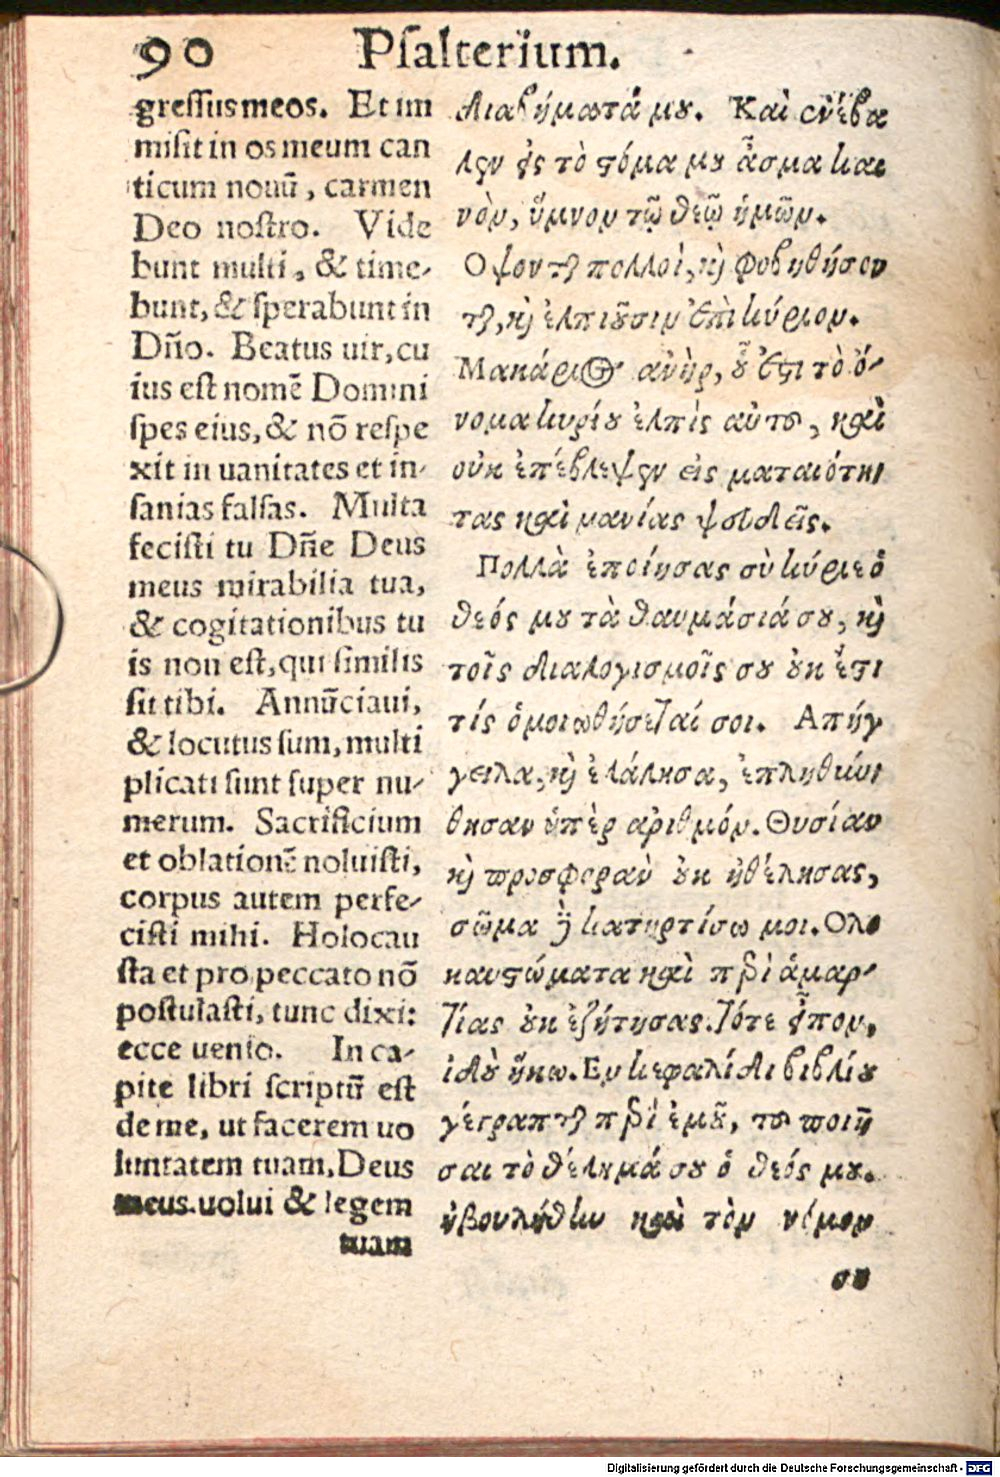 90 Psalterium.
gressus meos. Et im
misit in os meum can
ticum nouū, carmen
Deo nostro. Vide
bunt multi, & time-
bunt, & sperabunt in
Dño. Beatus uir, cu
ius est nomē Domini
spes eius, & nō respe
xit in uanitates et in-
sanias falsas. Multa
fecisti tu Dñe Deus
meus mirabilia tua,
& cogitationibus tu
is non est, qui similis
sit tibi. Annūciaui,
& locutus sum, multi
plicati sunt super nu-
merum. Sacrificium
et oblationē noluisti,
corpus autem perfe-
cisti mihi. Holocau
sta et pro peccato nō
postulasti, tunc dixi:
ecce uenio. In ca-
pite libri scriptū est
de me, ut facerem uo
luntatem tuam, Deus
meus uolui & legem
tuam
διαβήματά μου. Καὶ ἐνέβα
λεν εἰς τὸ στόμα μου ᾆσμα και
νὸν, ὕμνον τῷ θεῷ ἡμῶν.
Οψονται πολλοὶ, καὶ φοβηθήσον
ται, καὶ ἐλπιοῦσιν ἐπὶ κύριον.
Μακάριος ανὴρ, οὗ ἐστι τὸ ὄ-
νομα κυρίου ἐλπὶς αὐτοῦ, καὶ
οὐκ ἐπέβλεψεν εἰς ματαιότη
τας καὶ μανίας ψευδεῖς.
Πολλὰ ἐποίησας σὺ κύριε ὁ
θεός μου τὰ θαυμάσιά σου, καὶ
τοῖς διαλογισμοῖς σου οὐκ ἔστι
τίς ὁμοιωθήσεταί σοι. Απήγ
γειλα, καὶ ἐλάλησα, ἐπληθύν
θησαν ὑπὲρ ἀριθμόν. Θυσίαν
καὶ προσφορὰν οὐκ ἠθέλησας,
σῶμα δὲ κατηρτίσω μοι. Ολο
καυτώματα καὶ περὶ ἁμαρ-
τίας οὐκ ἐζήτησας. Τότε εἶπον,
ἰδοὺ ἥκω. Εν κεφαλίδι βιβλίου
γέγραπται περὶ ἐμοῦ, τοῦ ποιῆ
σαι τὸ θέλημά σου ὁ θεός μου.
ἠβουλήθην καὶ τὸν νόμον
σου
Digitalisierung gefördert durch die Deutsche Forschungsgemeinschaft - DFG